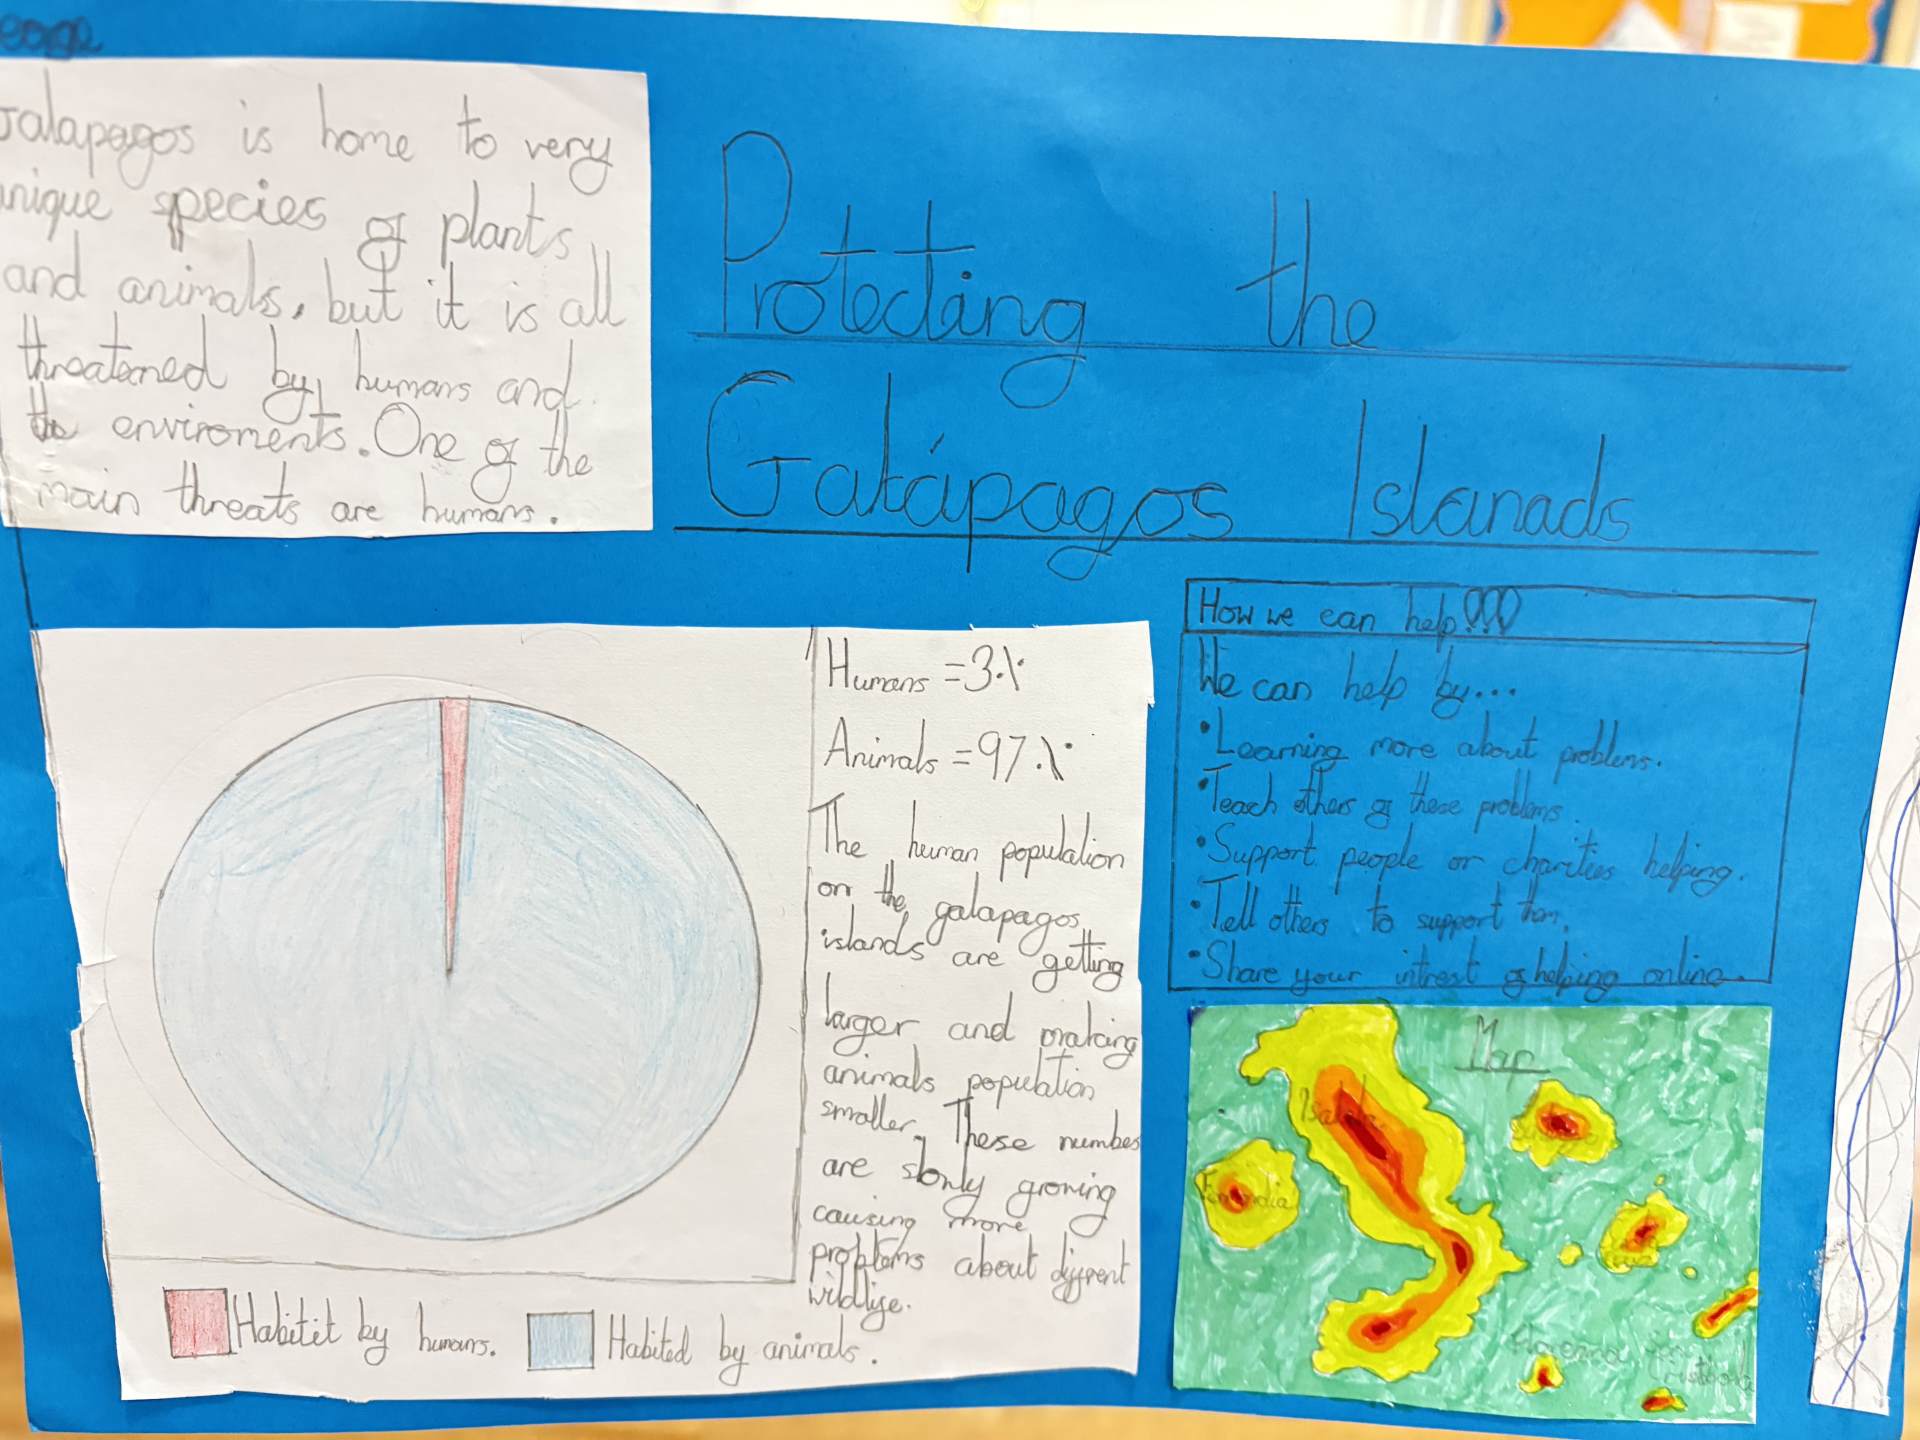 eorge
Galapagos is home to very
unique species of plants
and animals, but it is all
threatened by humans and
the enviroments. One of the
main threats are humans.
Protecting the
Galápagos Islanads
Humans = 3%
Animals = 97%
The human population
on the galapagos
islands are getting
larger and making
animals population
smaller. These numbes
are slowly growing
causing more
problems about diffrent
wildlife.
Habitit by humans.
Habited by animals.
How we can help!!!
We can help by...
• Learning more about problems.
• Teach others of these problems.
• Support people or charities helping.
• Tell others to support them.
• Share your intrest of helping online.
Map
Isabela